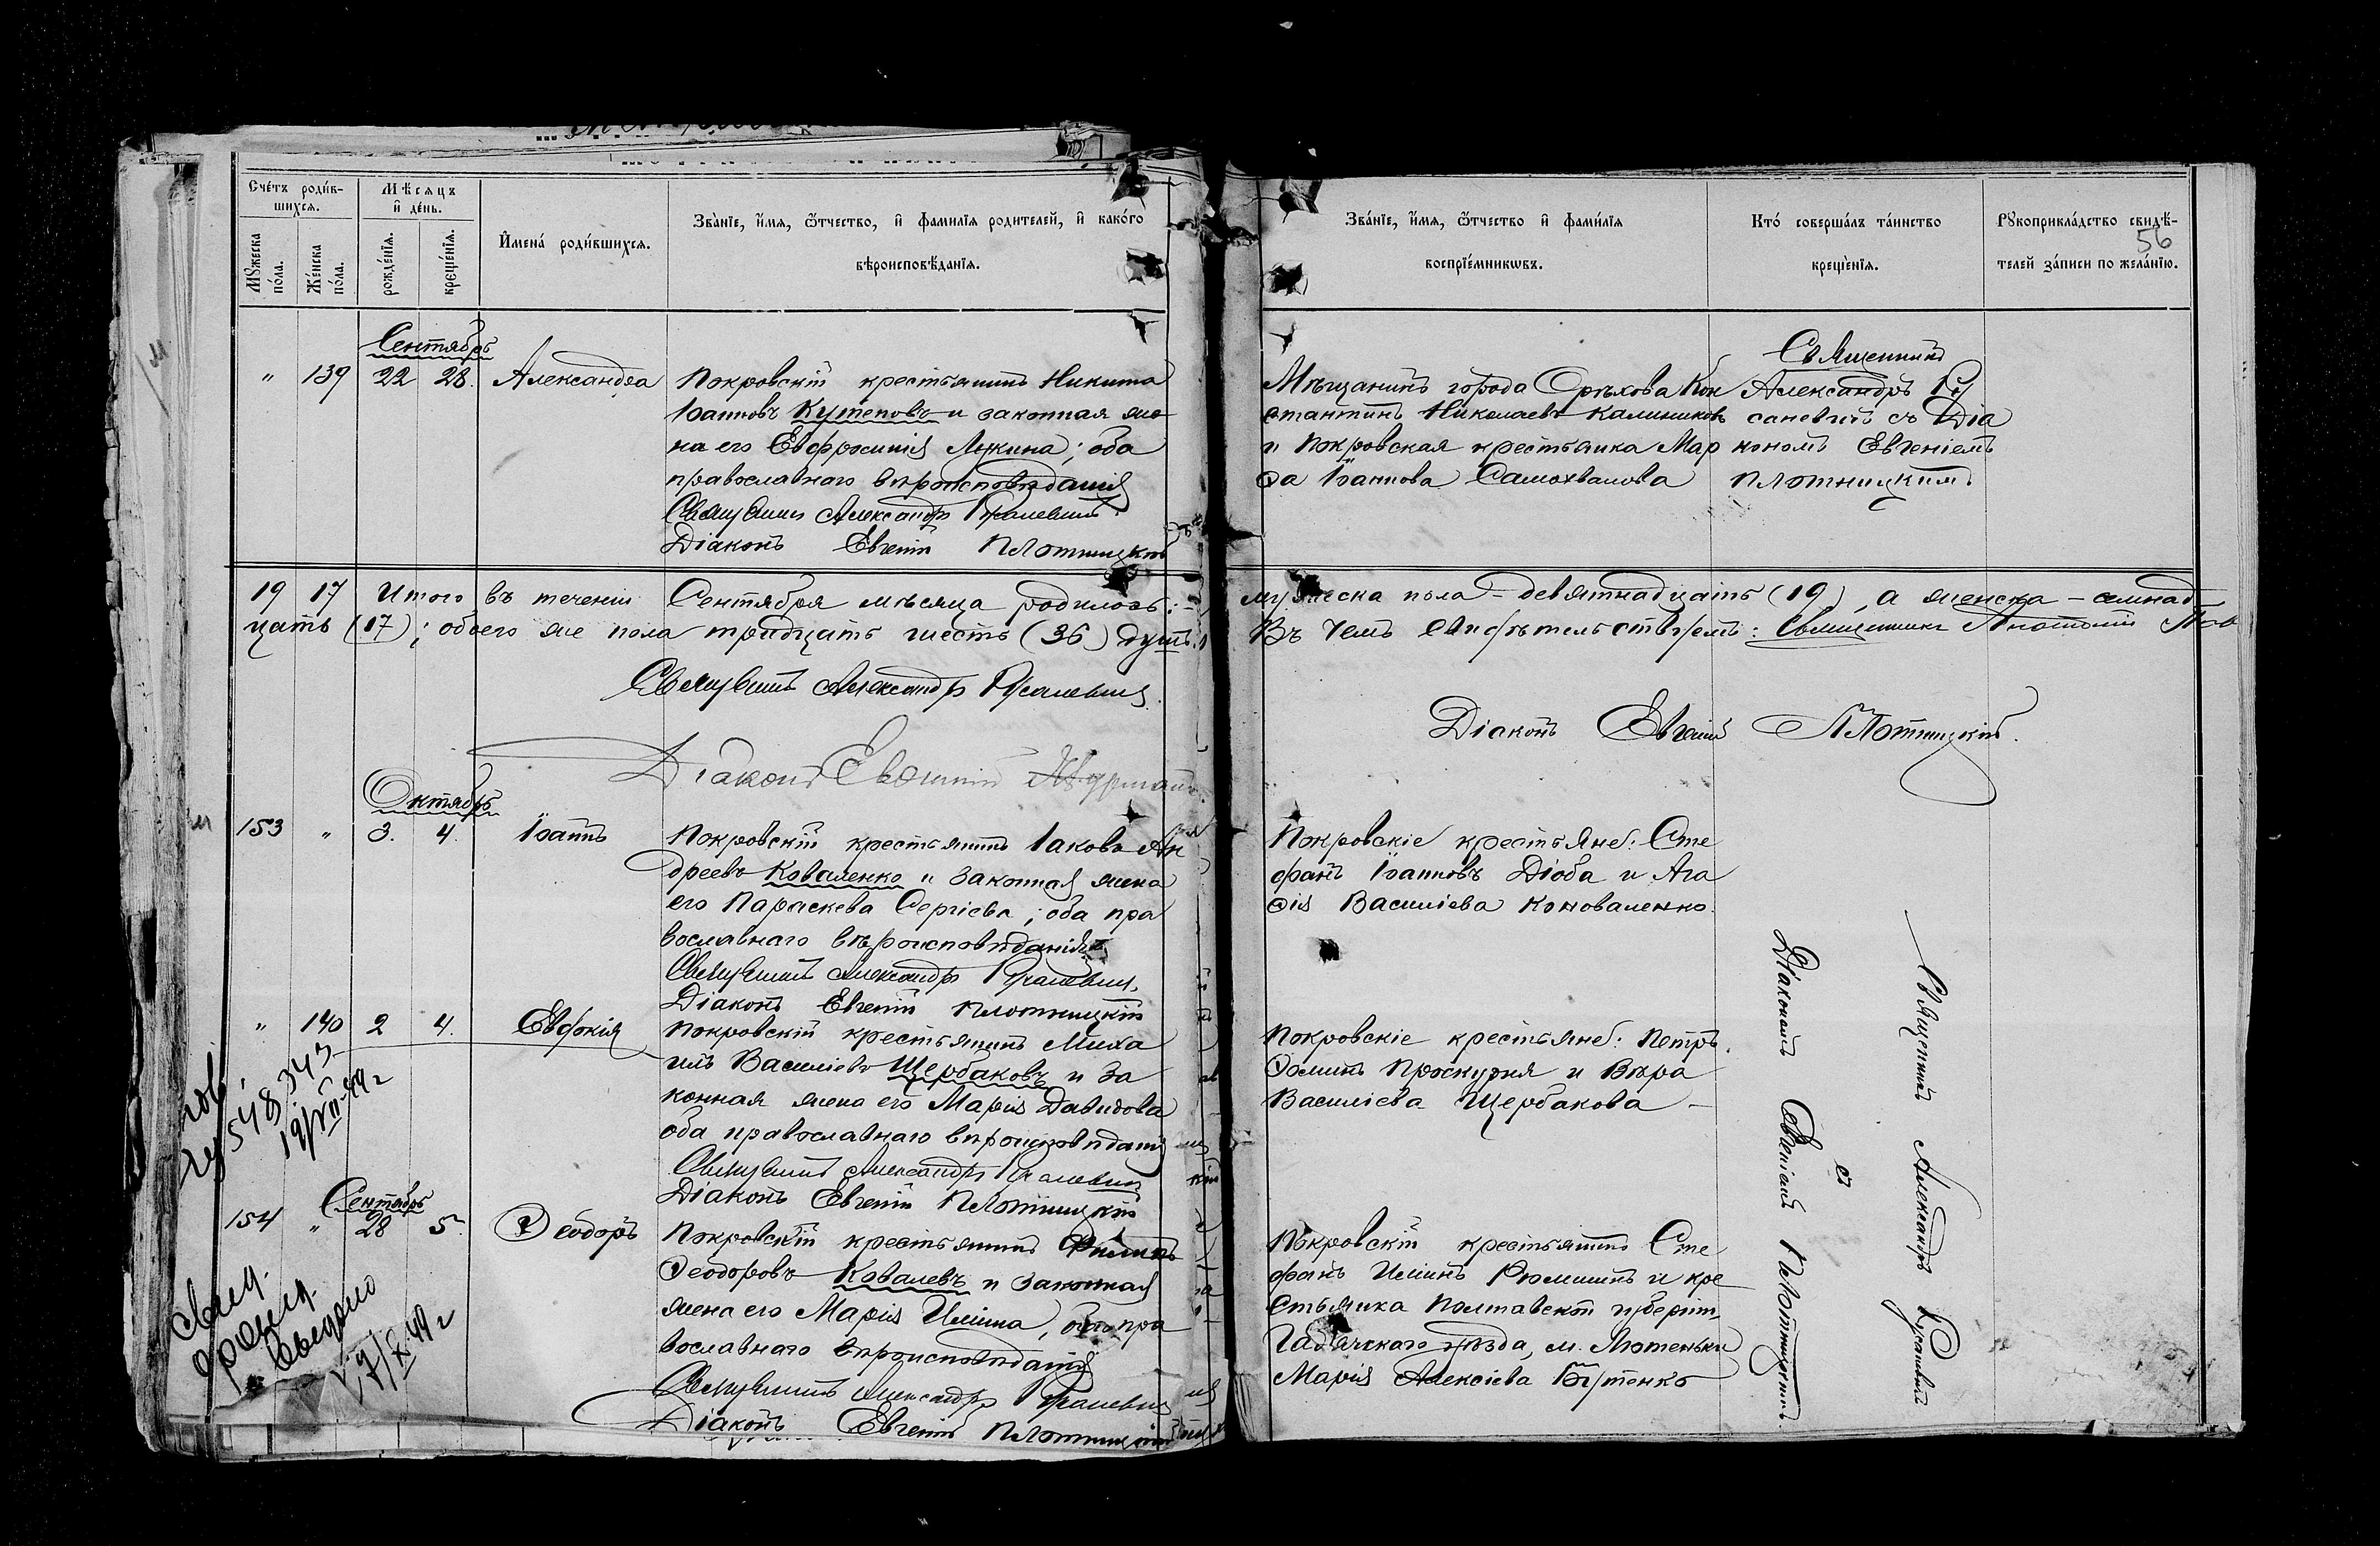 Счетъ родив-
шихся.
Мужеска
пола.
Женска
пола.
Мѣсяцъ
и день.
рожденія.
крещенія.
Имена родившихся.
Званіе, имя, отчество, и фамилія родителей, и какого
вѣроисповѣданія.
Званіе, имя, отчество и фамилія
воспріемниковъ.
Кто совершалъ таинство
крещенія.
Рукоприкладство свидѣ-
телей записи по желанію.
56
Сентябрь
" 139 22 28. Александра
Покровскій крестьянинъ Никита
Іоанновъ Кутеповъ и законная же
на его Евфросинія Лукина; оба
православнаго вѣроисповѣданія
Священникъ Александръ
Діаконъ Евгеній Плотницкій
Мѣщанинъ города Орѣхова Кон
стантинъ Николаевъ Калиниковъ
и Покровская крестьянка Мар
ѳа Іоаннова Самохвалова
Священникъ
Александръ Ру
саневичъ съ Діа
кономъ Евгеніемъ
Плотницкимъ.
19 17 Итого въ теченіи Сентября мѣсяца родилось:
мужеска пола - девятнадцать (19), а женска - семнад
цать (17); обоего же пола тридцать шесть (36) душъ.
Въ чемъ свидѣтельствуемъ: Священникъ
Священникъ Александръ
Діаконъ Евгеній Плотницкій.
Діаконъ
Октябрь
153 " 3. 4. Іоаннъ
Покровскій крестьянинъ Іаковъ Ан
дреевъ Коваленко и законная жена
его Параскева Сергіева; оба пра
вославнаго вѣроисповѣданія
Священникъ Александръ
Діаконъ Евгеній Плотницкій
Покровскіе крестьяне: Сте
фанъ Іоанновъ Діоба и Ага
ѳія Василіева Коноваленко.
" 140 2 4. Евдокія
Покровскій крестьянинъ Миха
илъ Василіевъ Щербаковъ и за
конная жена его Марія Давидова
оба православнаго вѣроисповѣданія
Священникъ Александръ
Діаконъ Евгеній Плотницкій
Покровскіе крестьяне: Петръ
Ѳоминъ Проскурня и Вѣра
Василіева Щербакова -
548343
Сентябрь
154 " 28 5. Ѳеодоръ
Покровскій крестьянинъ Филиппъ
Ѳеодоровъ Ковалевъ и законная
жена его Марія Иліина, оба пра
вославнаго вѣроисповѣданія
Священникъ Александръ
Діаконъ Евгеній Плотницкій
Покровскій крестьянинъ Сте
фанъ Иліинъ и кре
стьянка Полтавской губерніи,
Гадячскаго уѣзда, м. Лютеньки
Марія Алексіева Бутенко
Священникъ Александръ Русаневичъ
съ
Діакономъ Евгеніемъ Плотницкимъ